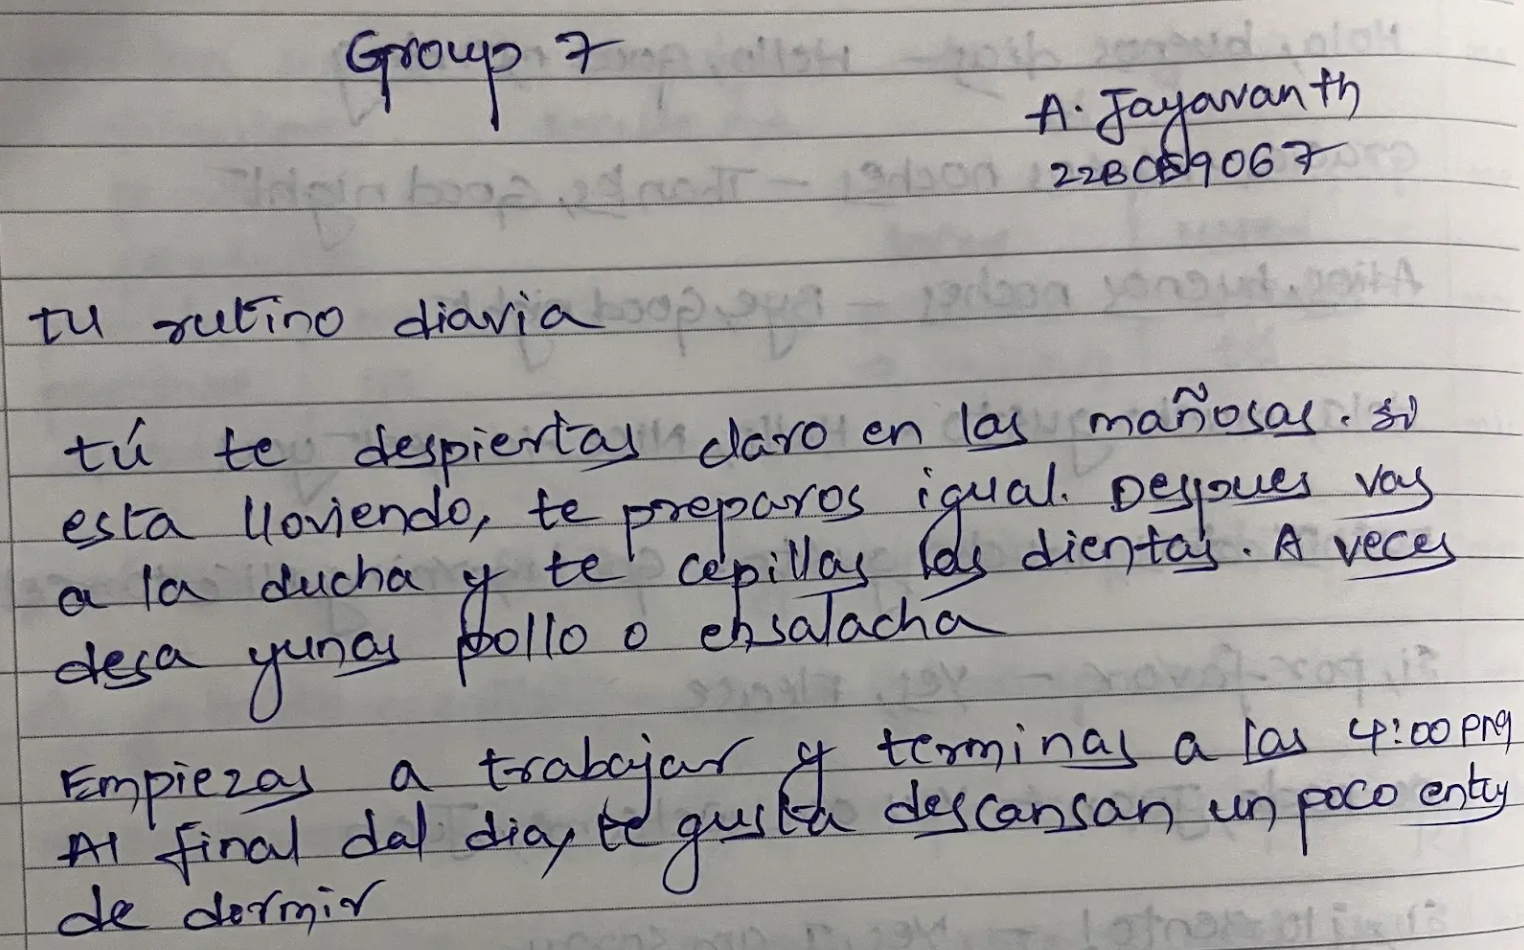 Group 7
A. Jayavanth
22BCE9067
tu rutino diaria
tú te despiertas claro en las mañosas. si
esta lloviendo, te preparos igual. Despues vas
a la ducha y te cepillas las dientas. A veces
desa yunas pollo o ensalacha
Empiezas a trabajar y terminas a las 4:00 pm
Al final dal dia, te gusta descansan un poco entes
de dormir